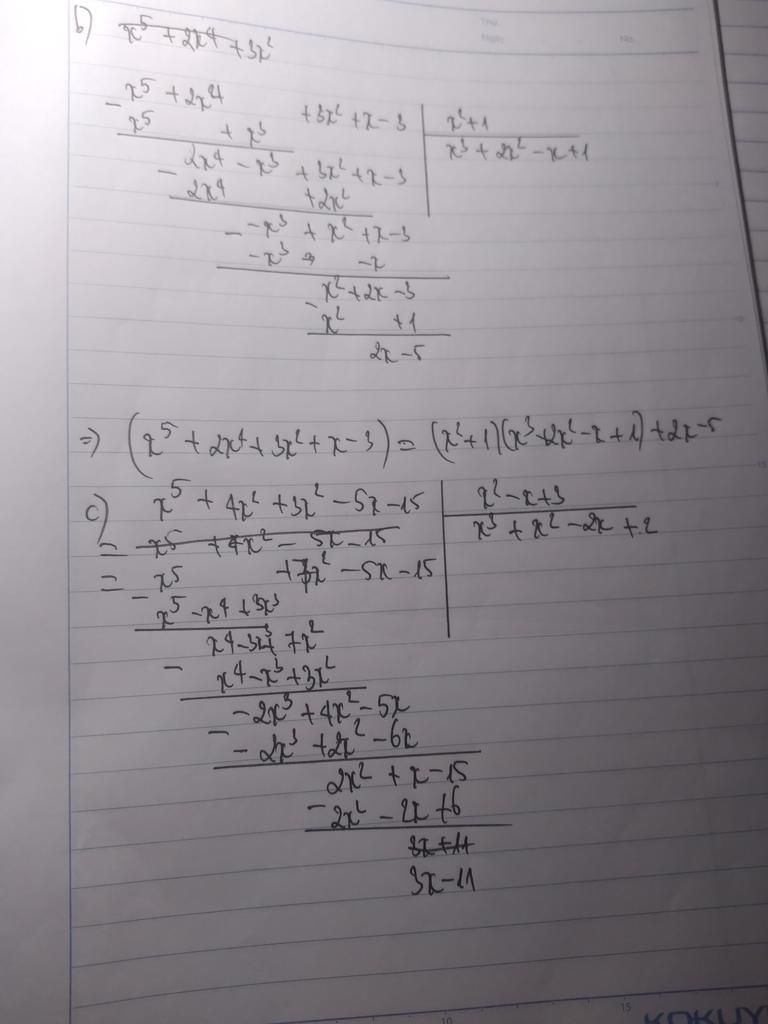 b) x⁵ + 2x⁴ + 3x²
x⁵ + 2x⁴ + 3x² + x - 3 | x² + 1
- x⁵ + x³ | x³ + 2x² - x + 1
2x⁴ - x³ + 3x² + x - 3
- 2x⁴ + 2x²
-x³ + x² + x - 3
- -x³ - x
x² + 2x - 3
- x² + 1
2x - 5
=> (x⁵ + 2x⁴ + 3x² + x - 3) = (x² + 1)(x³ + 2x² - x + 1) + 2x - 5
c) x⁵ + 4x² + 3x² - 5x - 15 | x² - x + 3
= x⁵ + 4x² - 5x - 15 | x³ + x² - 2x + 2
= x⁵ + 7x² - 5x - 15
- x⁵ - x⁴ + 3x³
x⁴ - 3x³ + 7x²
- x⁴ - x³ + 3x²
-2x³ + 4x² - 5x
- -2x³ + 2x² - 6x
2x² + x - 15
- 2x² - 2x + 6
3x + 11
3x - 11
Thứ
Ngày No.
10 15
KOKUY